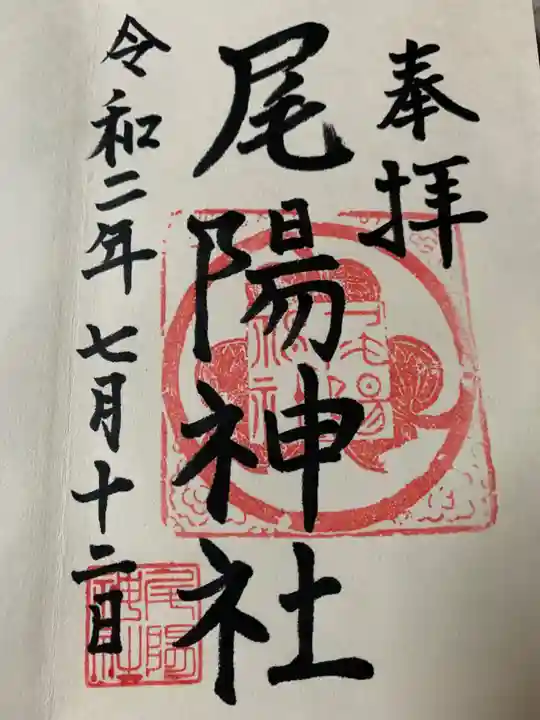 奉拝
尾陽神社
尾陽神社
令和二年七月十二日
尾陽神社